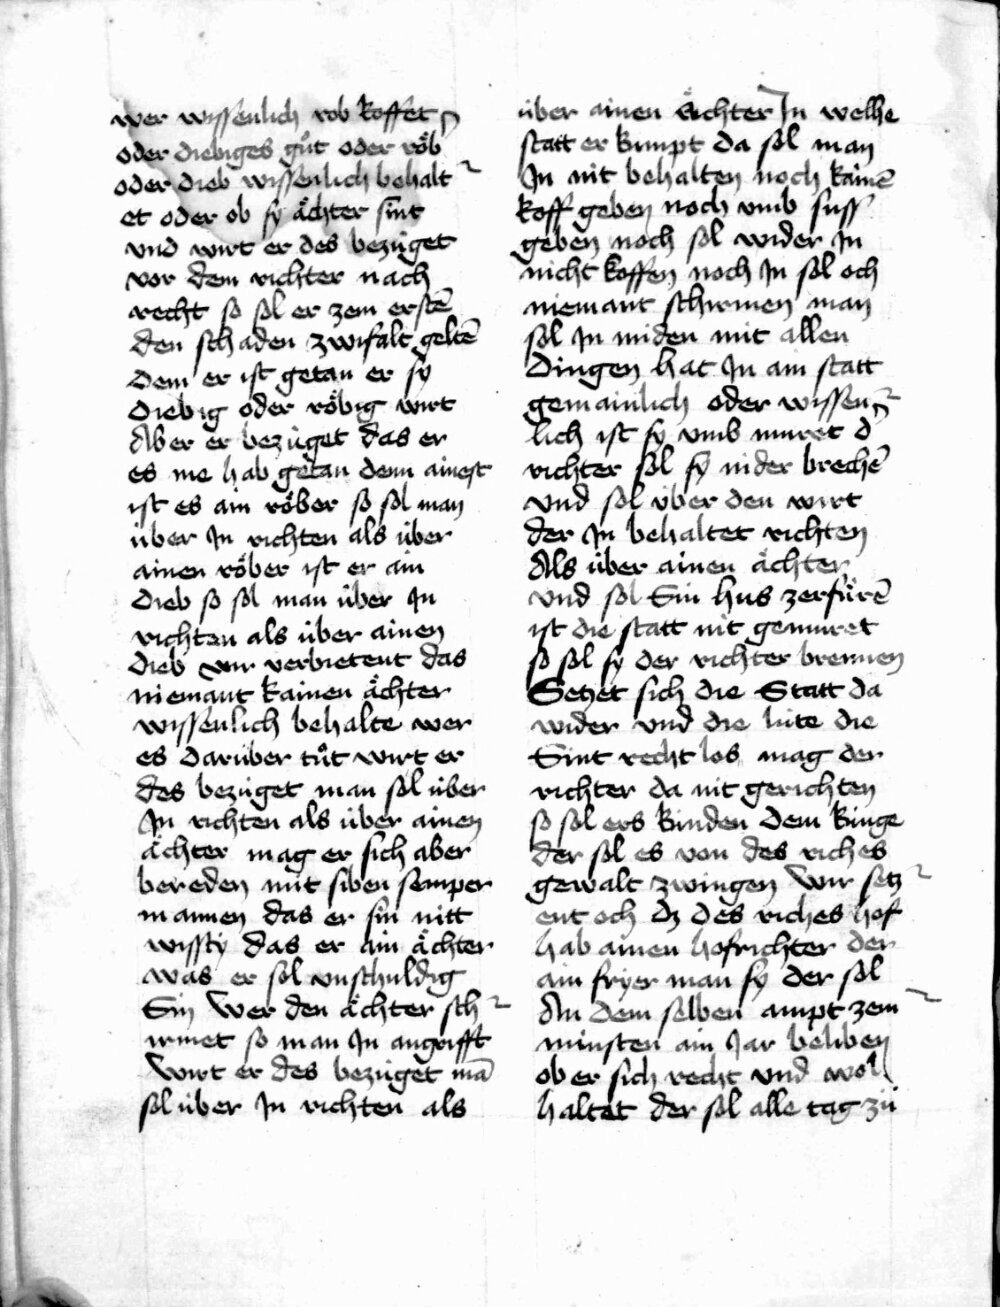 wer wissenlich rob koffet
oder diebiges gůt oder rǒb
oder dieb wissenlich behalt
et oder ob sy ächter sint
vnd wirt er des bezüget
vor dem richter nach
recht so sol er zem erstē
den schaden zwifalt geltē
dem er ist getan er sy
diebig oder rǒbig wirt
Aber er bezüget das er
es me hab getan denn ainest
ist es ain rǒber so sol man
über In richten als über
ainen rǒber ist er ain
dieb so sol man über In
richten als über ainen
dieb wir verbietent das
niemant kainen ächter
wissenlich behalte wer
es darüber tůt wirt er
des bezüget man sol über
In richten als über ainen
ächter mag er sich aber
bereden mit siben semper
mannen das er sin nitt
wissty das er ain ächter
was er sol vnschuldig
Sin Wer den ächter sch
irmet so man In angrifft
Wirt er des bezüget mā
sol über In richten als
über ainen ächter In welhe
statt er kumpt da sol man
In nit behalten noch kainē
koff geben noch vmb suss
geben noch sol wider In
nicht koffen noch In sol och
niemant schirmen man
sol In miden mit allen
Dingen hat In ain statt
gemainlich oder wissen
lich ist sy vmb muret d
richter sol sy nider brechē
vnd sol über den wirt
der In behaltet richten
Als über ainen ächter
vnd sol Sin hus zerfürē
ist die statt nit gemuret
so sol sy der richter brennen
Setzet sich die Statt da
wider vnd die lüte die
Sint recht los mag der
richter da nit gerichten
so sol ers künden dem künge
der sol es von des riches
gewalt zwingen Wir setz
ent och dz des riches hof
hab ainen hofrichter der
ain fryer man sy der sol
An dem selben ampt zem
minsten ain Jar beliben
ob er sich recht vnd wol
haltet der sol alle tag zü